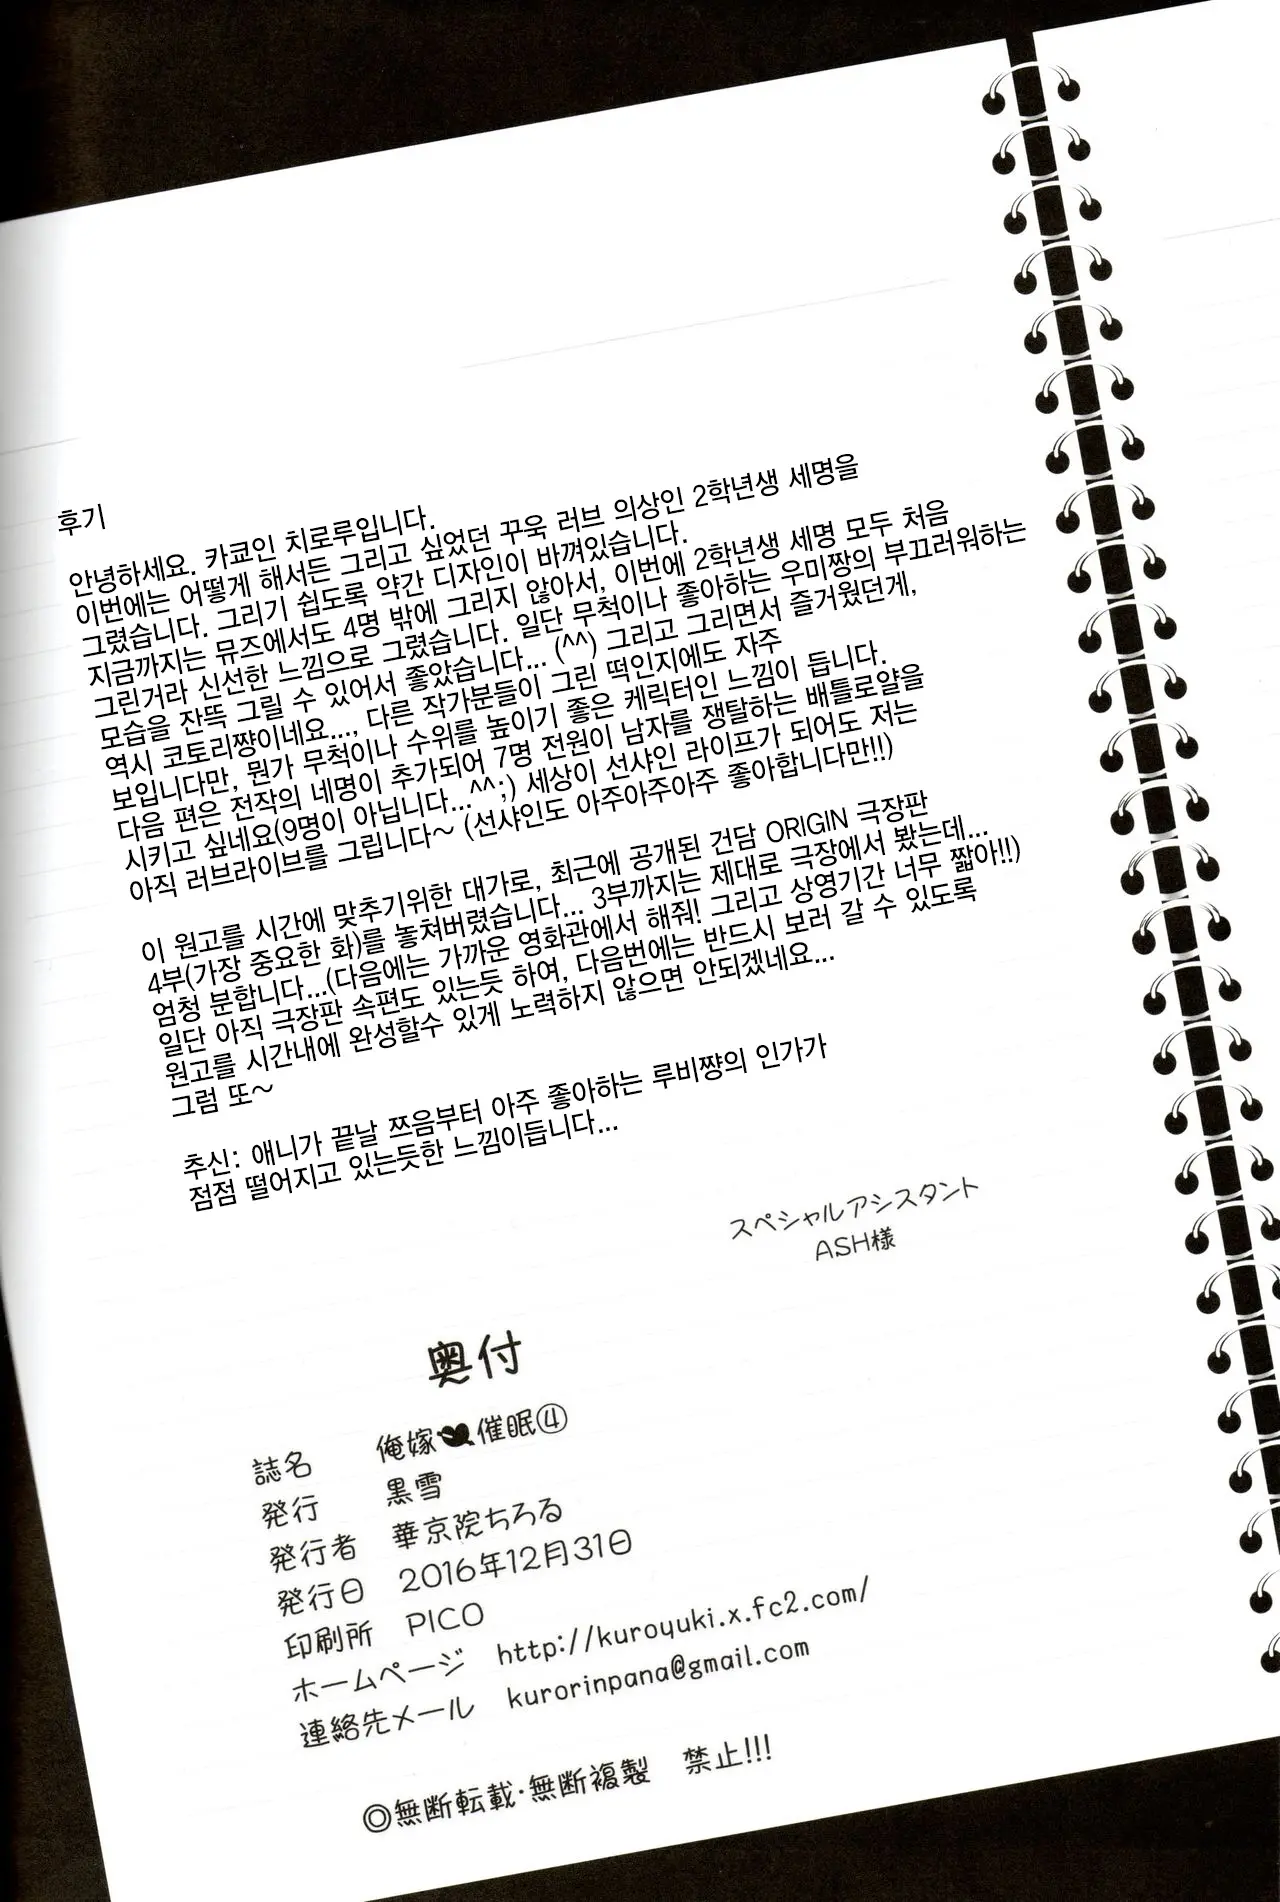 후기
안녕하세요. 카쿄인 치로루입니다.
이번에는 어떻게 해서든 그리고 싶었던 꾸욱 러브 의상인 2학년생 세명을
그렸습니다. 그리기 쉽도록 약간 디자인이 바껴있습니다.
지금까지는 뮤즈에서도 4명 밖에 그리지 않아서, 이번에 2학년생 세명 모두 처음
그린거라 신선한 느낌으로 그렸습니다. 일단 무척이나 좋아하는 우미쨩의 부끄러워하는
모습을 잔뜩 그릴 수 있어서 좋았습니다... (^^) 그리고 그리면서 즐거웠던게,
역시 코토리쨩이네요..., 다른 작가분들이 그린 떡인지에도 자주
보입니다만, 뭔가 무척이나 수위를 높이기 좋은 케릭터인 느낌이 듭니다.
다음 편은 전작의 네명이 추가되어 7명 전원이 남자를 쟁탈하는 배틀로얄을
시키고 싶네요(9명이 아닙니다...^^;) 세상이 선샤인 라이프가 되어도 저는
아직 러브라이브를 그립니다~ (선샤인도 아주아주아주 좋아합니다만!!)
이 원고를 시간에 맞추기위한 대가로, 최근에 공개된 건담 ORIGIN 극장판
4부(가장 중요한 화)를 놓쳐버렸습니다... 3부까지는 제대로 극장에서 봤는데...
엄청 분합니다...(다음에는 가까운 영화관에서 해줘! 그리고 상영기간 너무 짧아!!)
일단 아직 극장판 속편도 있는듯 하여, 다음번에는 반드시 보러 갈 수 있도록
원고를 시간내에 완성할수 있게 노력하지 않으면 안되겠네요...
그럼 또~
추신: 애니가 끝날 쯔음부터 아주 좋아하는 루비쨩의 인가가
점점 떨어지고 있는듯한 느낌이듭니다...
スペシャルアシスタント
ASH様
奥付
誌名 俺嫁催眠④
発行 黒雪
発行者 華京院ちろる
発行日 2016年12月31日
印刷所 PICO
ホームページ http://kuroyuki.x.fc2.com/
連絡先メール kurorinpana@gmail.com
◎無断転載・無断複製 禁止!!!